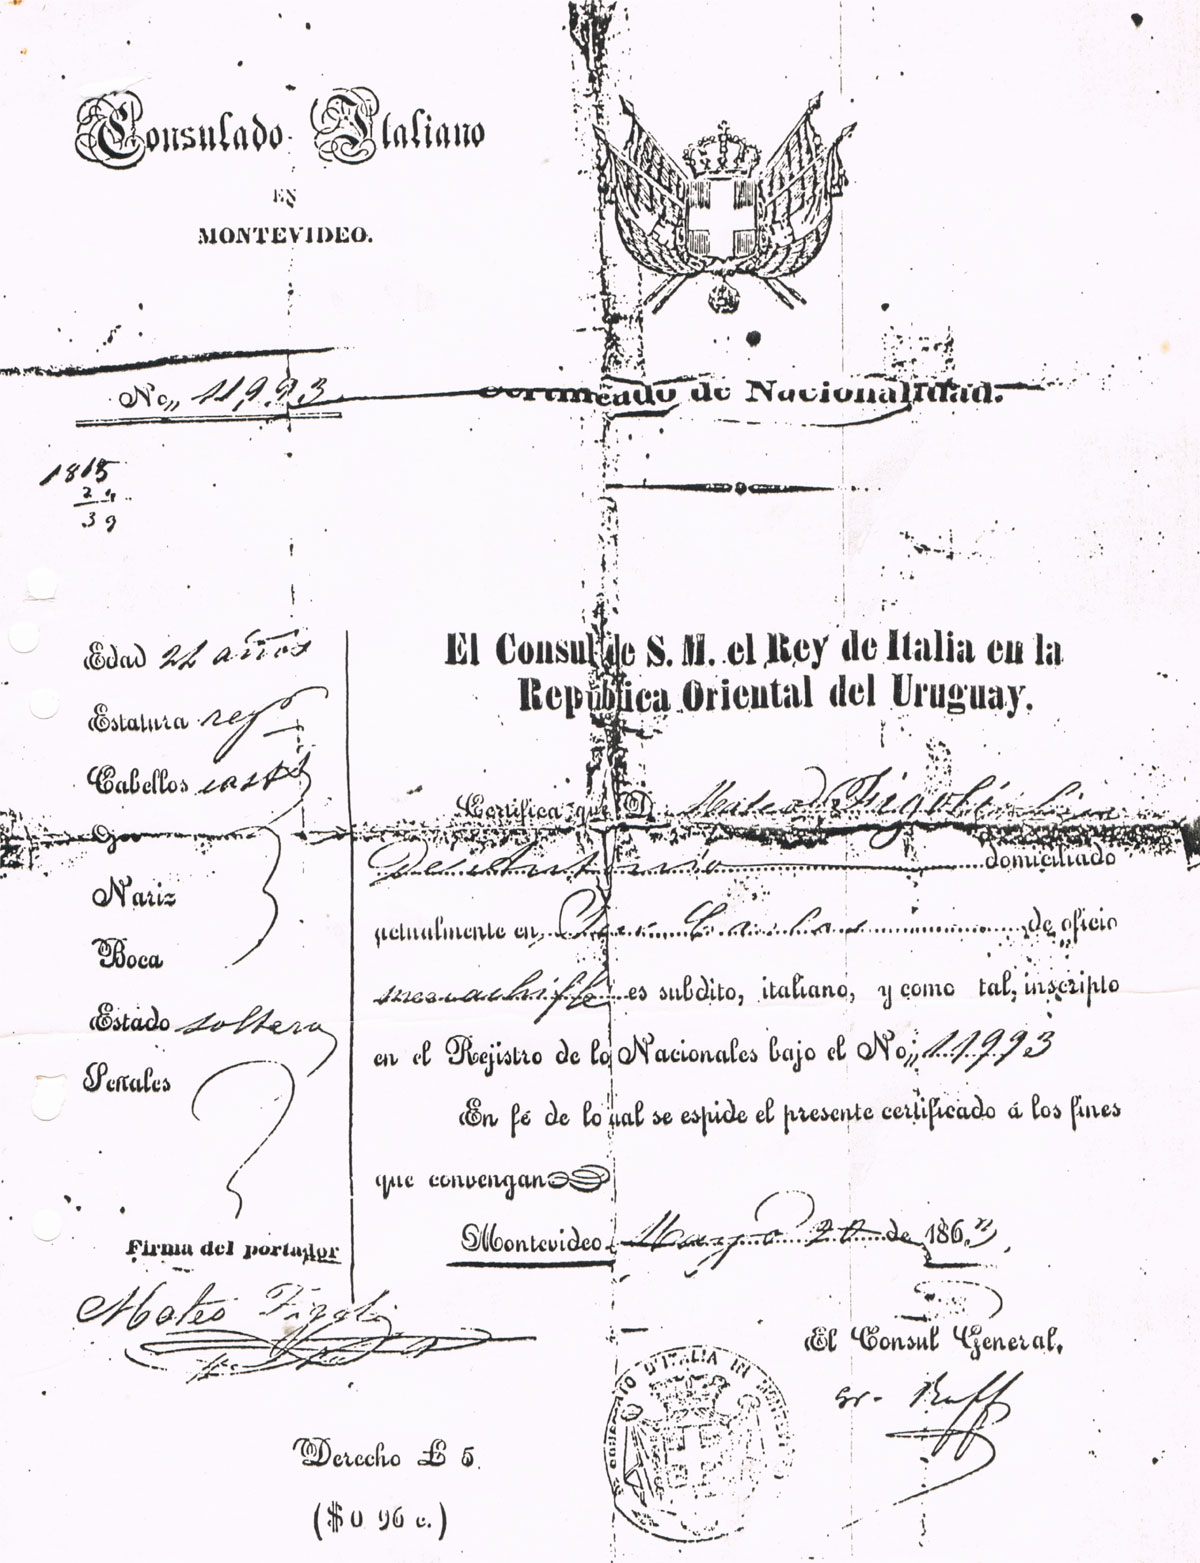 Consulado Italiano
EN
MONTEVIDEO.
No,, 11,993
Certificado de Nacionalidad.
1815
24
39
Edad 24 años
Estatura reg
Cabellos cast
Nariz
Boca
Estado soltero
Señales
Firma del portador
Mateo Figoli
El Consul de S. M. el Rey de Italia en la
República Oriental del Uruguay.
Certifica que D. Mateo Figoli
De Antonio domiciliado
actualmente en de oficio
es subdito, italiano, y como tal, inscripto
en el Rejistro de lo Nacionales bajo el No,, 11993
En fé de lo ual se espide el presente certificado á los fines
que convengan
Montevideo 20 de 186
El Consul General,
Derecho £ 5.
($ 0 96 c.)
D'ITALIA IN